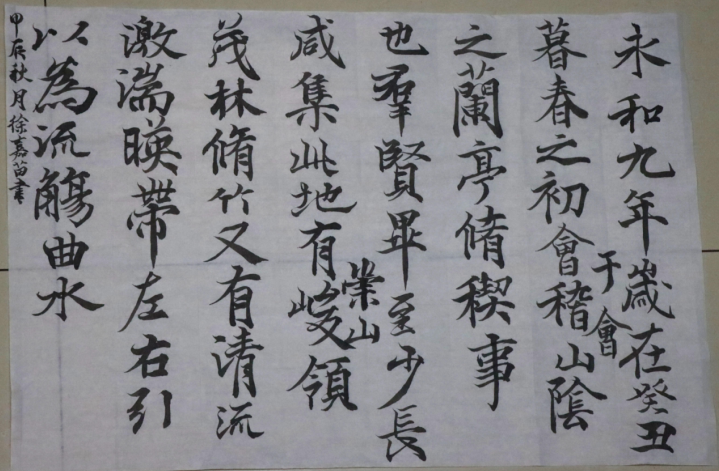 永和九年歲在癸丑
于會
暮春之初會稽山陰
之蘭亭脩稧事
也羣賢畢至少長
崇山
咸集此地有峻領
茂林脩竹又有清流
激湍暎帶左右引
以為流觴曲水
甲辰秋月徐嘉苗書